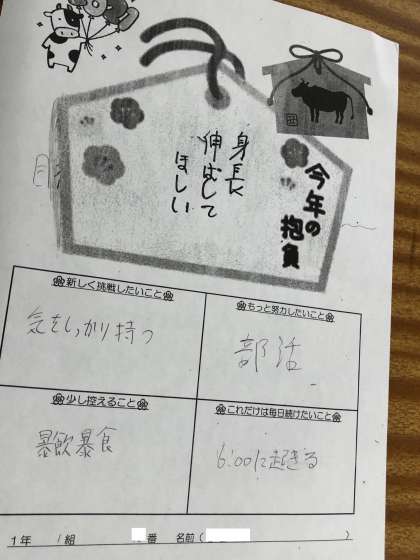 今年の抱負
身長
伸ばして
ほしい
新しく挑戦したいこと
気をしっかり持つ
もっと努力したいこと
部活
少し控えること
暴飲暴食
これだけは毎日続けたいこと
6:00に起きる
1年 1組 番 名前( )